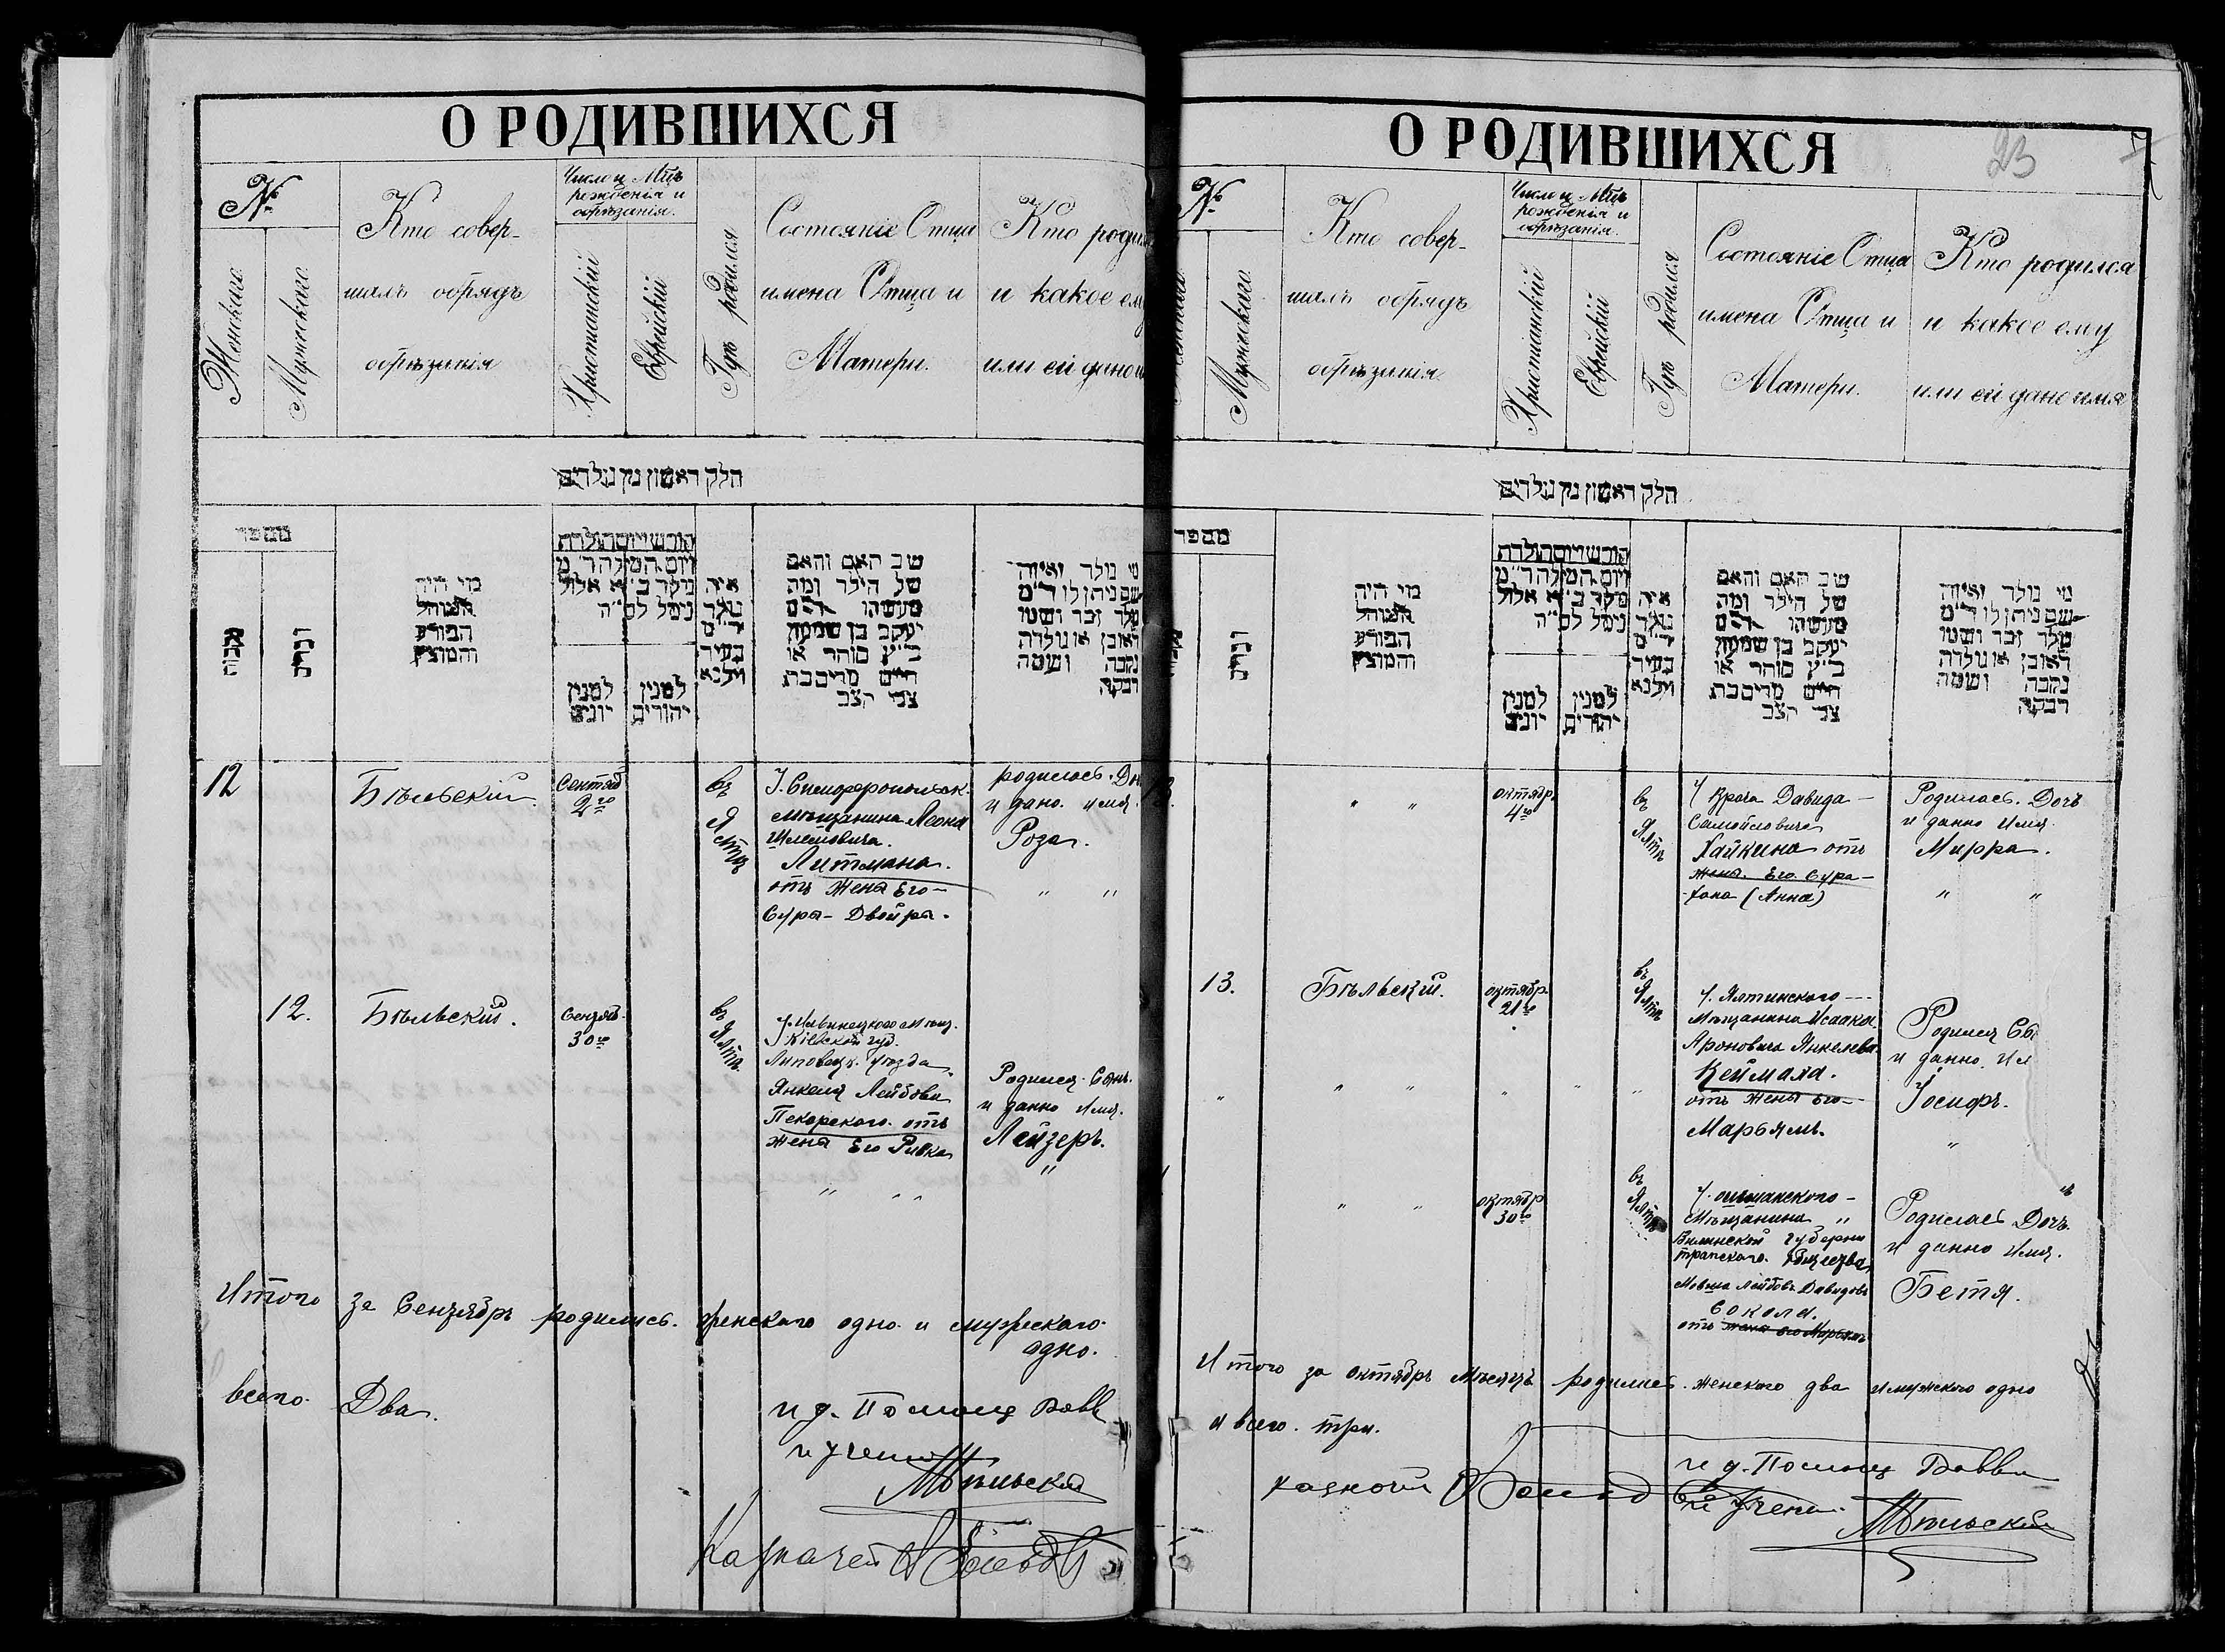 О РОДИВШИХСЯ
№
Женскаго
Мужескаго
Кто совер-
шалъ обрядъ
обрѣзанія
Число и Мцъ
рожденія и
обрѣзанія.
Христіанскій
Еврейскій
Гдѣ родился
Состояніе Отца
имена Отца и
Матери.
Кто роди
и какое ем
или ей дано и
חלק ראשון מן נולדים
מספר
נקבות
זכרים
מי היה
המוהל
הפורע
והמוצץ
למנין
יונים
למנין
יהודים
איה
נולד
ד״מ
בעיר
ווילנא
שב האם והאם
של הילד ומה
יעקב בן שמעון
כ״ץ סוחר או
חיים מרים בת
צבי קצב
מי נולד ואיזה
שם ניתן לו ד״מ
ילד זכר ושמו
ראובן או נולדה
נקבה ושמה
רבקה
12
Бѣльскій.
Сентяб
2го
въ
Ялтѣ
У. Симферопольск.
мѣщанина Леона
Шлемовича.
Литмана.
отъ жены Его-
Сура-Двойра.
родилась. До
и дано. имя.
Роза.
" "
12.
Бѣльскій.
Сентяб.
30го
въ
Ялтѣ
Кіевской губ.
Липовецк. уѣзда
Янкеля Лейбова
Пекарского. отъ
жены Его Ривка
" "
Родился. Сынъ.
и данно Имя.
Лейзеръ.
"
Итого за Сентябрь родилось. женскаго одно. и мужескаго.
одно.
всего. Два.
и д. Помощ Равв
и учены
МБѣльскій
Казначей
О РОДИВШИХСЯ
23
№
Мужескаго
Кто совер-
шалъ обрядъ
обрѣзанія
Число и Мцъ
рожденія и
обрѣзанія.
Христіанскій
Еврейскій
Гдѣ родился
Состояніе Отца
имена Отца и
Матери.
Кто родился
и какое ему
или ей дано имя
חלק ראשון מן נולדים
מספר
זכרים
מי היה
המוהל
הפורע
והמוצץ
למנין
יונים
למנין
יהודים
איה
נולד
ד״מ
בעיר
ווילנא
שב האם והאם
של הילד ומה
יעקב בן שמעון
כ״ץ סוחר או
חיים מרים בת
צבי קצב
מי נולד ואיזה
שם ניתן לו ד״מ
ילד זכר ושמו
ראובן או נולדה
נקבה ושמה
רבקה
" "
октябр.
4го
въ
Ялтѣ
У Врача Давида-
Самойловича
Хайкина отъ
жена Его Сура-
-Хана (Анна)
Родилась. Дочь
и данно Имя.
Мирра.
" "
13.
Бѣльскій.
октябр.
21го
въ
Ялтѣ
У. Ялтинского
Мѣщанина Исаака
Ароновича Янкелева
Кеймаха.
отъ Жены Его-
Марьямъ.
Родился Сы
и данно. Им
Іосифъ.
"
" "
октябр
30го
въ
Ялтѣ
У. ошмянского-
Мѣщанина "
Виленской Губерни
трапского. Общества
Мовша Лейбовъ Давидовъ
Сокола.
отъ жена его Марьямъ
Родилась Дочь.
и данно Имя.
Бетя.
Итого за октябрь Мѣсяцъ родилось. женского два и мужского одно
и всего. три.
и д. Помощ Равви
и Учены.
МБѣльскій
казначей